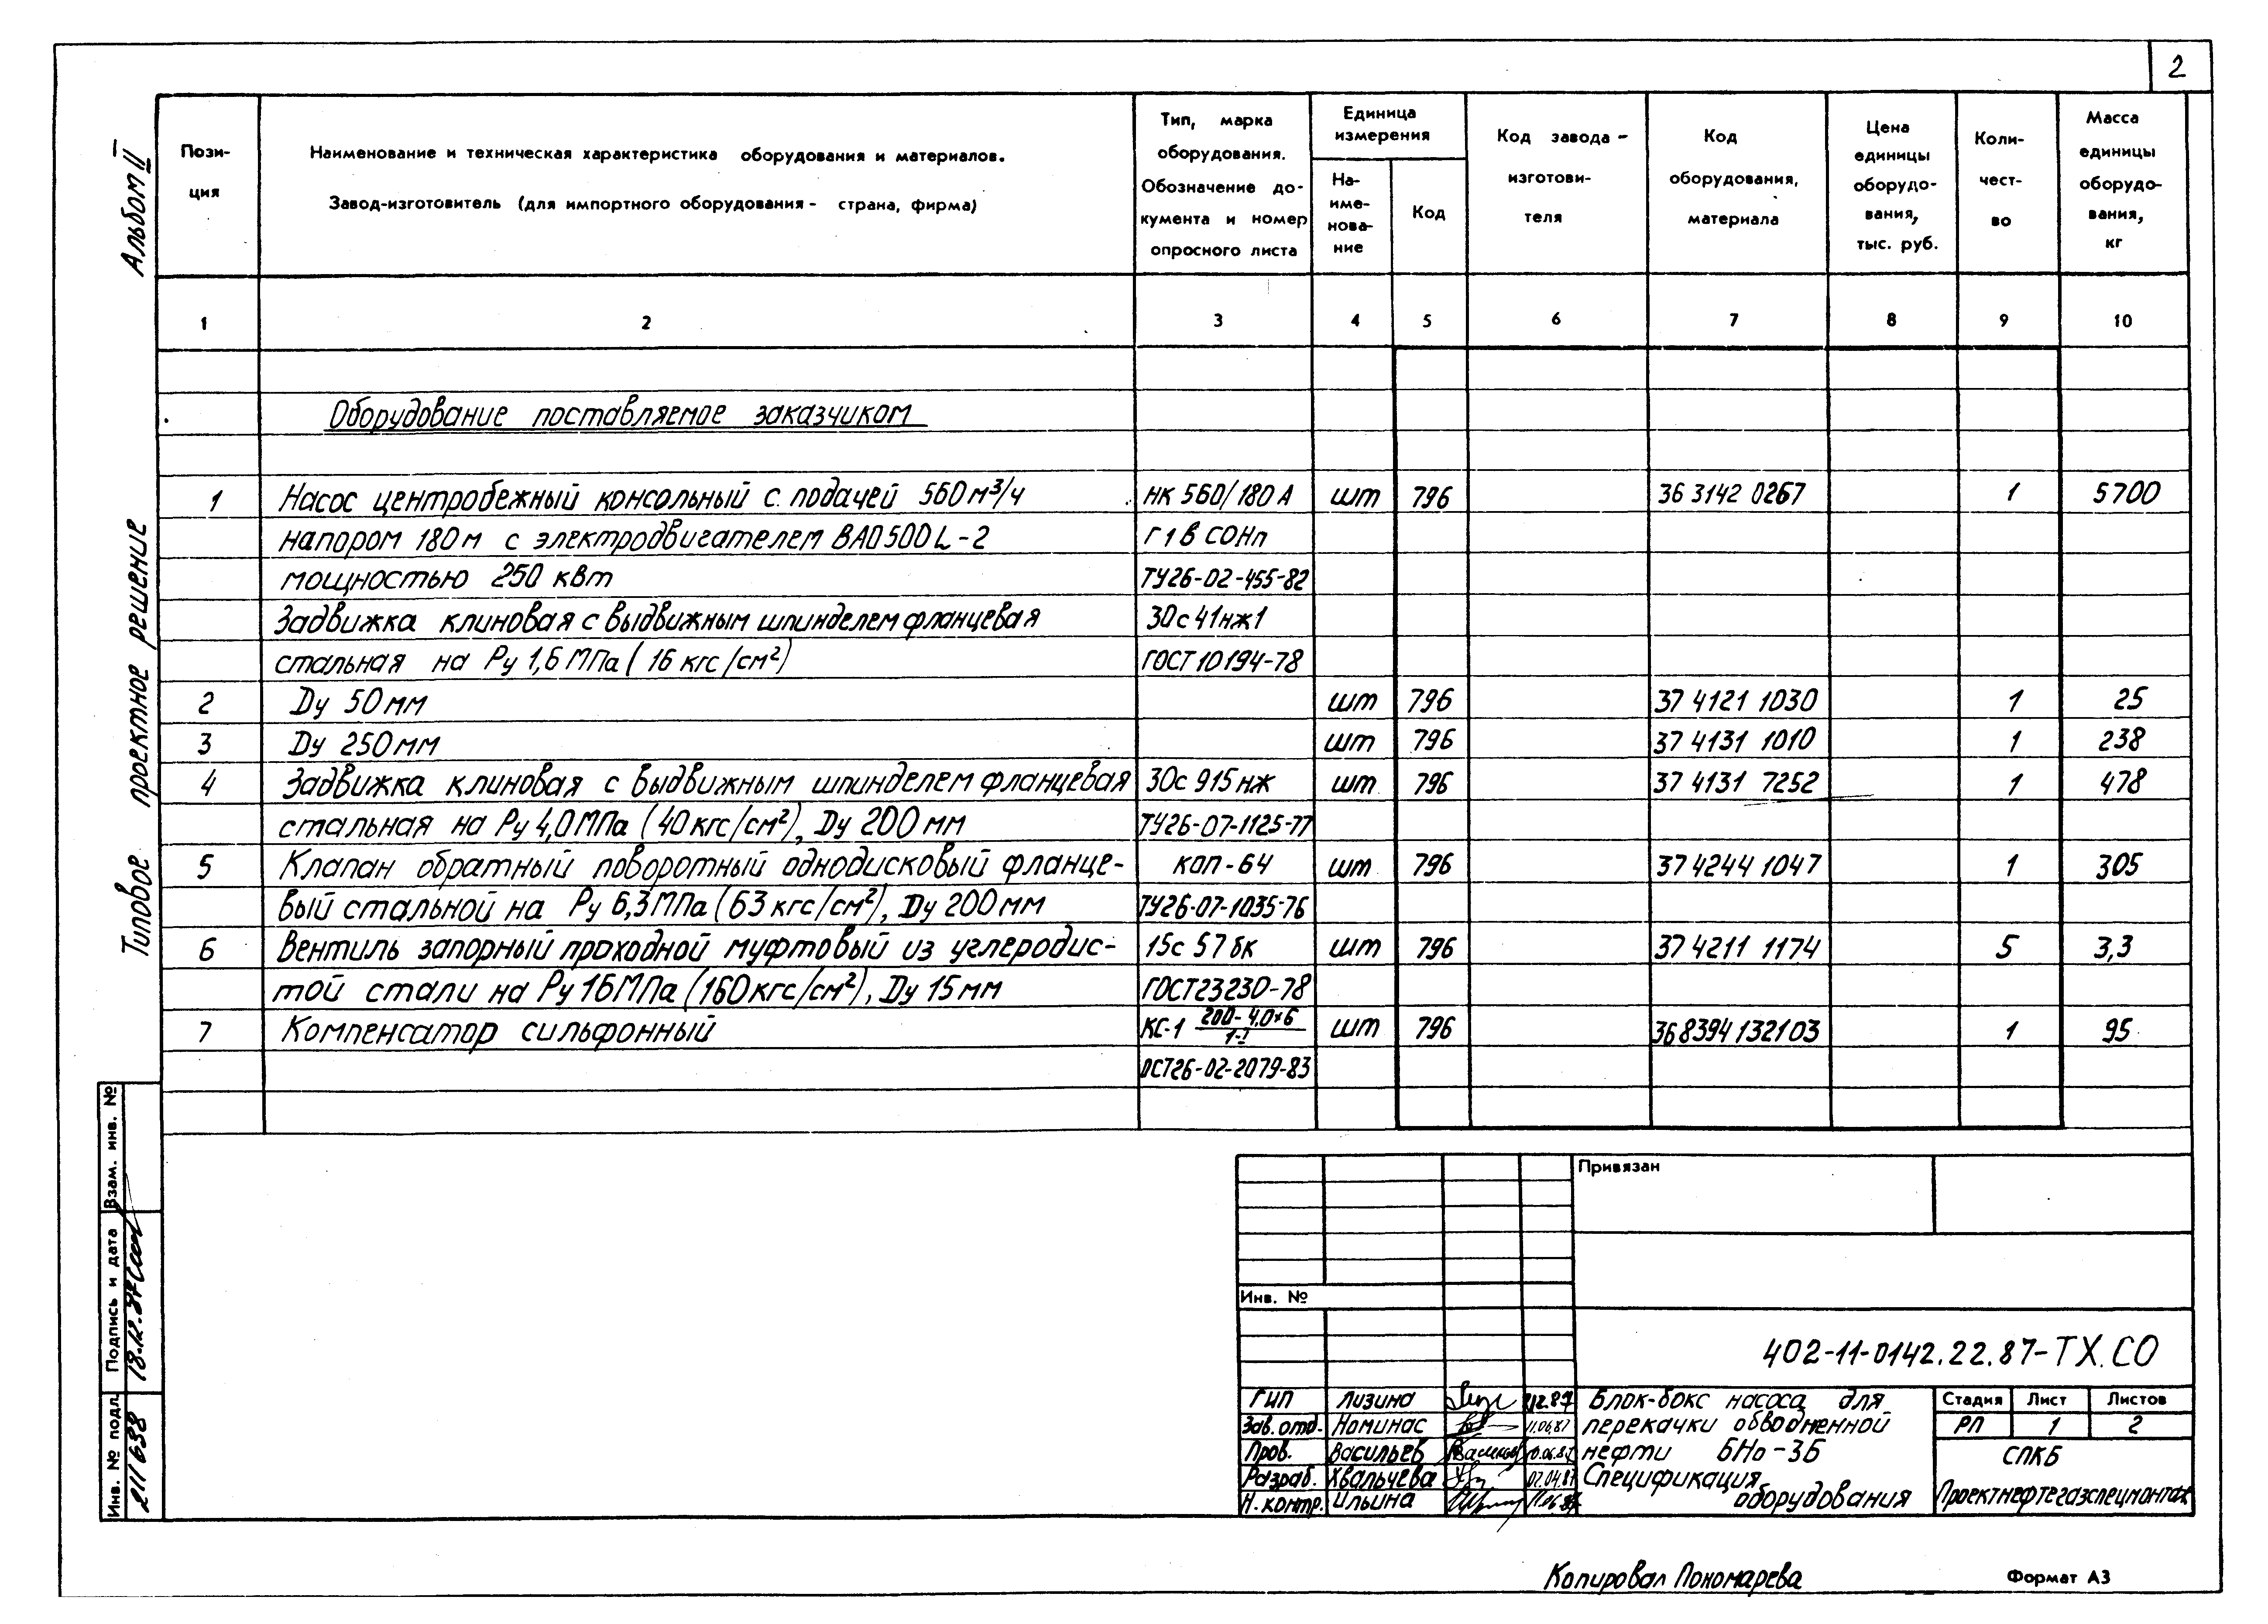 2
Альбом II
Типовое проектное решение
Пози-
ция
Наименование и техническая характеристика оборудования и материалов.
Завод-изготовитель (для импортного оборудования - страна, фирма)
Тип, марка
оборудования.
Обозначение до-
кумента и номер
опросного листа
Единица
измерения
На-
име-
нова-
ние
Код
Код завода -
изготови-
теля
Код
оборудования,
материала
Цена
единицы
оборудо-
вания,
тыс. руб.
Коли-
чест-
во
Масса
единицы
оборудо-
вания,
кг
1 2 3 4 5 6 7 8 9 10
Оборудование поставляемое заказчиком
1 Насос центробежный консольный с подачей 560 м³/ч НК 560/180 А шт 796 36 3142 0267 1 5700
напором 180 м с электродвигателем ВАО500L-2 Г 1 в СОНп
мощностью 250 квт ТУ26-02-455-82
Задвижка клиновая с выдвижным шпинделем фланцевая 30с 41нж1
стальная на Ру 1,6 МПа (16 кгс/см²) ГОСТ 10194-78
2 Dу 50 мм шт 796 37 4121 1030 1 25
3 Dу 250 мм шт 796 37 4131 1010 1 238
4 Задвижка клиновая с выдвижным шпинделем фланцевая 30с 915 нж шт 796 37 4131 7252 1 478
стальная на Ру 4,0 МПа (40 кгс/см²), Dу 200 мм ТУ26-07-1125-77
5 Клапан обратный поворотный однодисковый фланце- КОП-64 шт 796 37 4244 1047 1 305
вый стальной на Ру 6,3 МПа (63 кгс/см²), Dу 200 мм ТУ26-07-1035-76
6 Вентиль запорный проходной муфтовый из углеродис- 15с 57 бк шт 796 37 4211 1174 5 3,3
той стали на Ру 16 МПа (160 кгс/см²), Dу 15 мм ГОСТ 23230-78
7 Компенсатор сильфонный КС-1 200-4,0×6 шт 796 36 8394 132103 1 95
ОСТ26-02-2079-83
Взам. инв. №
Подпись и дата
18.12.87
Инв. № подл.
2111638
Привязан
Инв. №
402-11-0142.22.87-ТХ.СО
ГИП Лизина
Зав. отд. Номинас 11.06.87
Пров. Васильев
Разраб. Хвальчева 02.04.87
Н. контр. Ильина
Блок-бокс насоса для
перекачки обводненной
нефти БНо-3Б
Спецификация
оборудования
Стадия Лист Листов
РП 1 2
СПКБ
Проектнефтегазспецмонтаж
Копировал Пономарева Формат А3